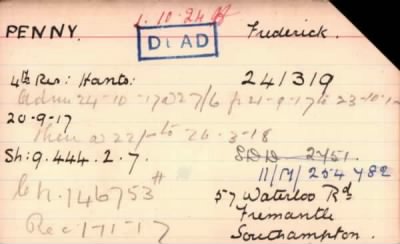 1.10.24
PENNY. DEAD Frederick.
4th Res: Hants: 241319
Adm 24-10-17 a 27/6 fr 21-9-17 to 23-10-17
20-9-17
Then a 22/- to 26-3-18
Sh: 9.444.2.7. SDD 2451
11/M/254482
Ch. 146753 # 57 Waterloo Rd
Fremantle
Rec 1-11-17 Southampton.